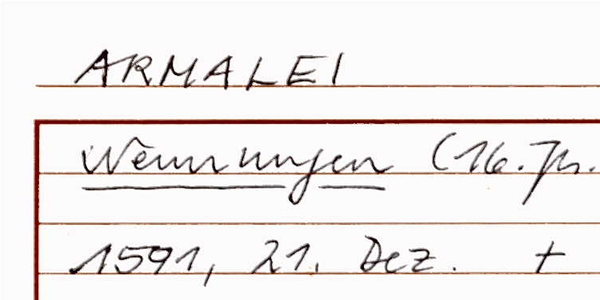 ARMALEI
Wennungen (16. Jh.
1591, 21. Dez. +